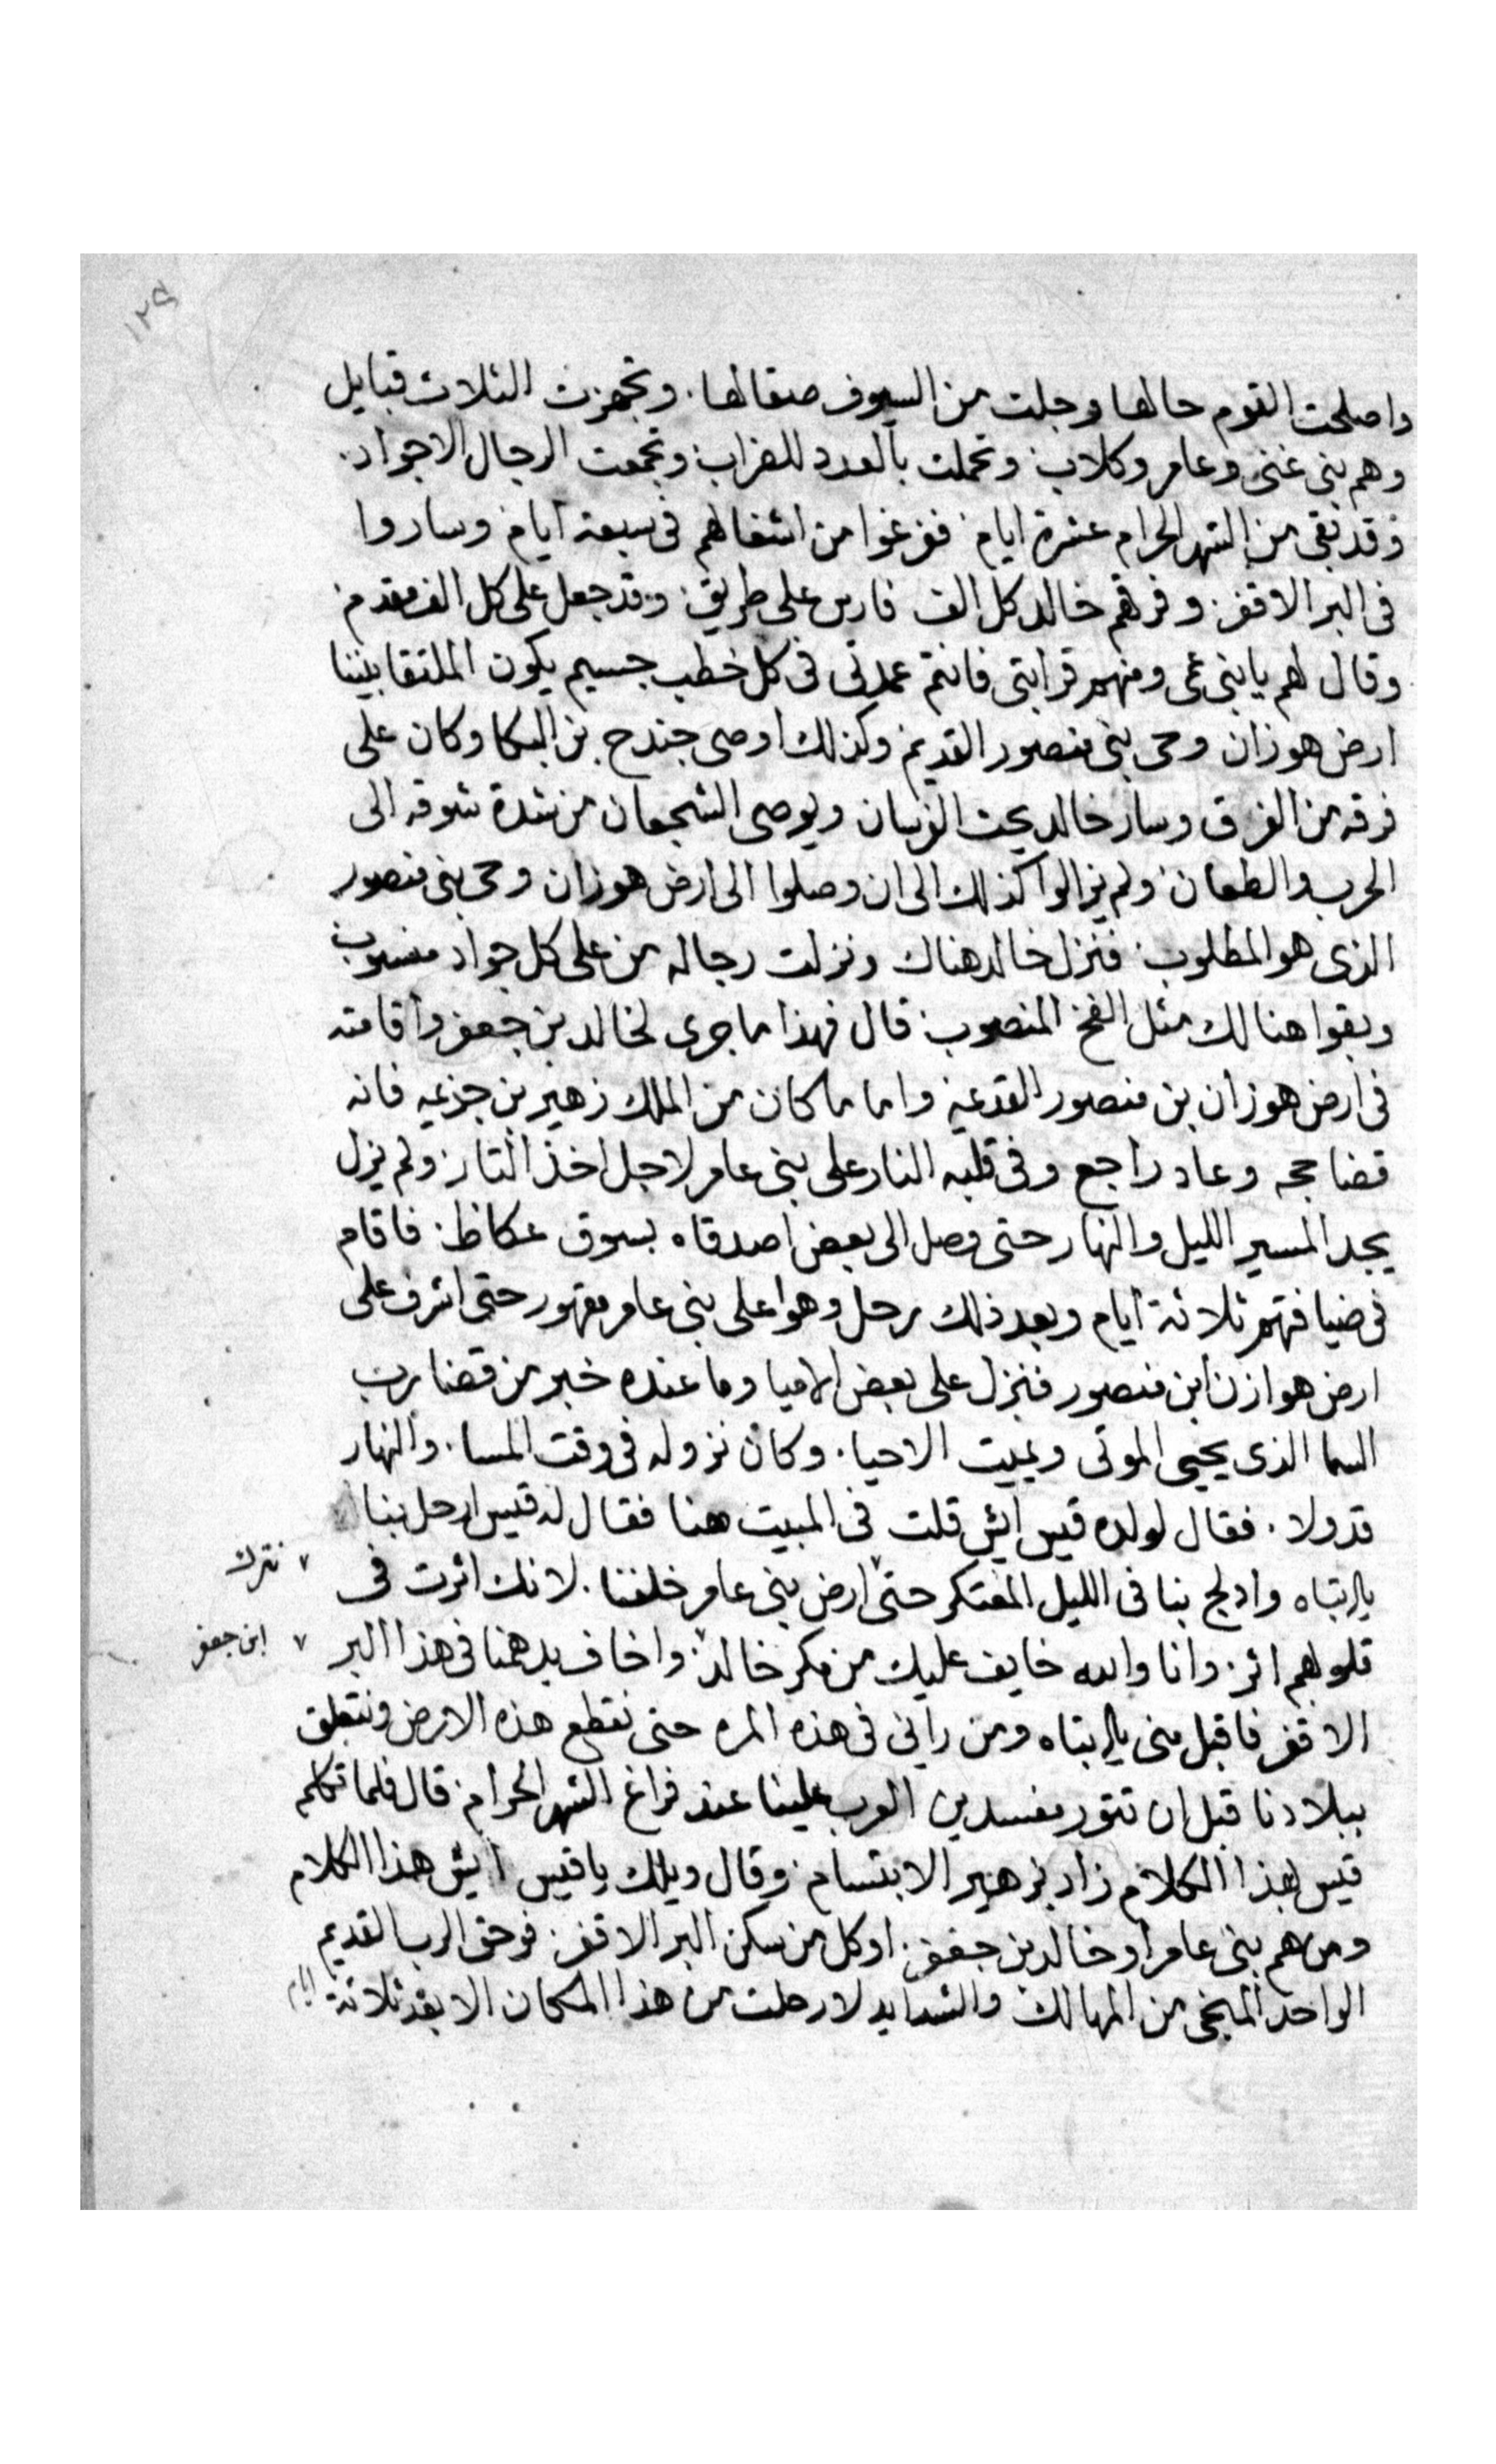 ١٢٩
واصلحت القوم حالها وجلت من السيوف صقالها. وتجهزت الثلاث قبايل
وهم بنى غنى وعامر وكلاب. وتحملت بالعدد للضراب. وتجمعت الرجال الاجواد.
وقد بقى من الشهر الحرام عشرة ايام. ففرغوا من اشغالهم فى سبعة ايام. وساروا
فى البر الاقفر. وفرقهم خالد كل الف فارس على طريق. وقد جعل على كل الف مقدم.
وقال لهم يا بنى عمى ومنهم قرابتى فانتم عمدتى فى كل خطب جسيم يكون الملتقا بيننا
ارض هوزان وحى بنى منصور القديم وكذلك اوصى جندح بن البكا وكان على
فرقه من الفرق وسار خالد يحث الفرسان ويوصى الشجعان من شدة شوقه الى
الحرب والطعان. ولم يزالوا كذلك الى ان وصلوا الى ارض هوزان وحى بنى منصور
الذى هو المطلوب. فنزل خالد هناك ونزلت رجاله من على كل جواد منسوب
وبقوا هنالك مثل الفخ المنصوب. قال فهذا ما جرى لخالد بن جعفر واقامته
فى ارض هوزان بن منصور القدعيه واما ما كان من الملك زهير بن جزيمه فانه
قضا حجه وعاد راجع وفى قلبه النار على بنى عامر لاجل اخذ التار. ولم يزل
يجد المسير الليل والنهار حتى وصل الى بعض اصدقاه بسوق عكاظ. فاقام
فى ضيافتهم ثلاثة ايام وبعد ذلك رحل وهوا على بنى عامر مقهور حتى اشرف على
ارض هوازن ابن منصور فنزل على بعض الاميا وما عنده خبر من قضا رب
السما الذى يحيى الموتى ويميت الاحيا. وكان نزوله فى وقت المسا. والنهار
قد ولا. فقال لولده قيس ايش قلت فى المبيت هنا فقال له قيس ارحل بنا
يا ابتاه وادلج بنا فى الليل المعتكر حتى ٧ ارض بنى عامر خلفنا. لانك اثرت فى
٧ نترك
قلوبهم اثر. وانا والله خايف عليك من مكر خالد ٧. واخاف يدهمنا فى هذا البر
٧ ابن جعفر
الاقفر فاقبل منى يا ابتاه ومن رانى فى هذه المره حتى نقطع هذه الارض ونتعلق
ببلادنا قبل ان تتور مفسدين العرب علينا عند فراغ الشهر الحرام. قال فلما تكلم
قيس بهذا الكلام زاد بزهير الابتسام. وقال ويلك يا قيس ايش هذا الكلام
ومن هم بنى عامر او خالد بن جعفر. او كل من سكن البر الاقفر. فوحق الرب القديم
الواحد المنجى من المهالك والشدايد لا رحلت من هذا المكان الا بعد ثلاثة ايام